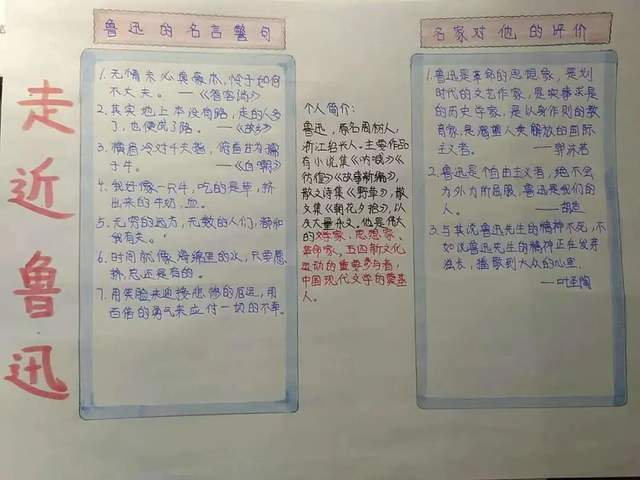 走近鲁迅
鲁迅的名言警句
1. 无情未必真豪杰，怜子如何
不丈夫。 ——《答客诮》
2. 其实地上本没有路，走的人多
了，也便成了路。 ——《故乡》
3. 横眉冷对千夫指，俯首甘为孺
子牛。 ——《自嘲》
4. 我好像一只牛，吃的是草，挤
出来的牛奶、血。
5. 无穷的远方，无数的人们，都和
我有关。
6. 时间就像海绵里的水，只要愿
挤，总还是有的。
7. 用笑脸来迎接悲惨的厄运，用
百倍的勇气来应付一切的不幸。
个人简介：
鲁迅，原名周树人，
浙江绍兴人。主要作品
有小说集《呐喊》《
彷徨》《故事新编》，
散文诗集《野草》，散
文集《朝花夕拾》，以
及大量杂文。他是伟大
的文学家、思想家、
革命家，五四新文化
运动的重要参与者，
中国现代文学的奠基
人。
名家对他的评价
1. 鲁迅是革命的思想家，是划
时代的文艺作家，是实事求是
的历史学家，是以身作则的教
育家，是渴望人类解放的国际
主义者。 ——郭沫若
2. 鲁迅是个自由主义者，绝不会
为外力所屈服，鲁迅是我们的
人。 ——胡适
3. 与其说鲁迅先生的精神不死，不
如说鲁迅先生的精神正在发芽
滋长，播散到大众的心里。
——叶圣陶